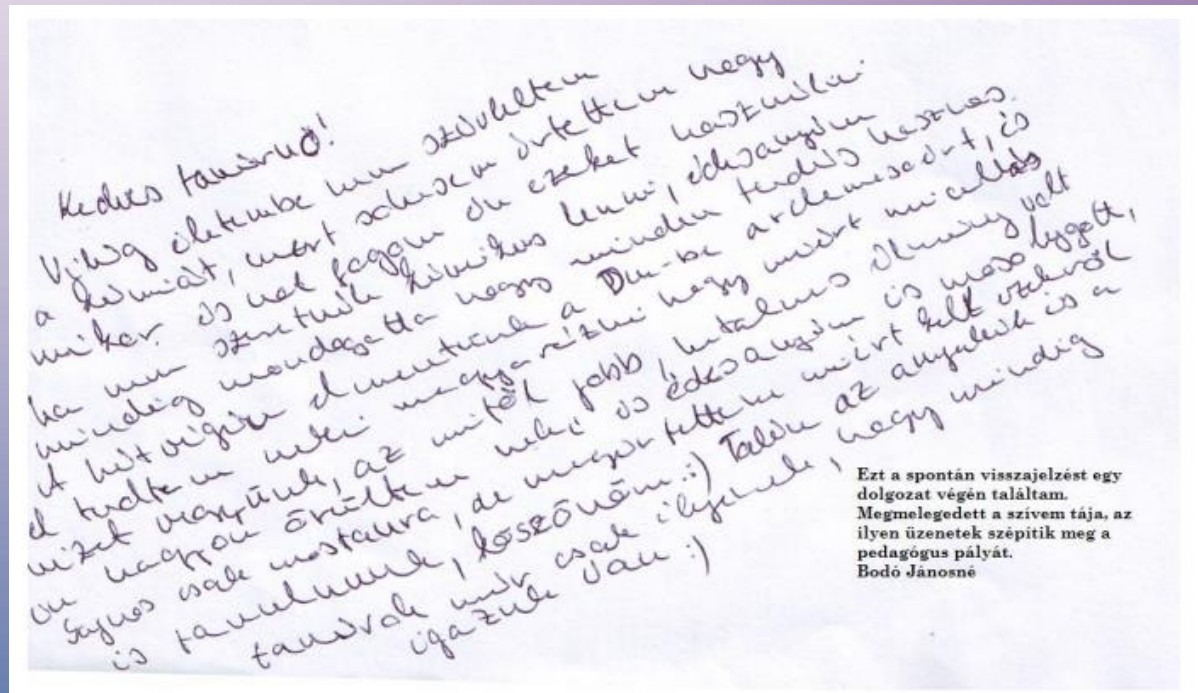 Kedves tanárnő!
Világ életembe nem szíveltem
a kémiát, mert sohasem értettem hogy
mikor és hol fogom én ezeket használni
ha nem szeretnék kémikus lenni, édesanyám
mindig mondogatta hogy minden tudás hasznos.
A hétvégén elmentünk a Dm-be arclemosóért, és
el tudtam neki magyarázni hogy miért micellás
vizet vegyünk, az mitől jobb, hatalmas élmény volt
én nagyon örültem neki és édesanyám is mosolygott,
Sajnos csak mostanra, de megértettem miért kell ezekről
is tanulnunk, köszönöm :) Talán az anyukák és a
tanárok már csak ilyenek, hogy mindig
igazuk van :)
Ezt a spontán visszajelzést egy
dolgozat végén találtam.
Megmelegedett a szívem tája, az
ilyen üzenetek szépítik meg a
pedagógus pályát.
Bodó Jánosné